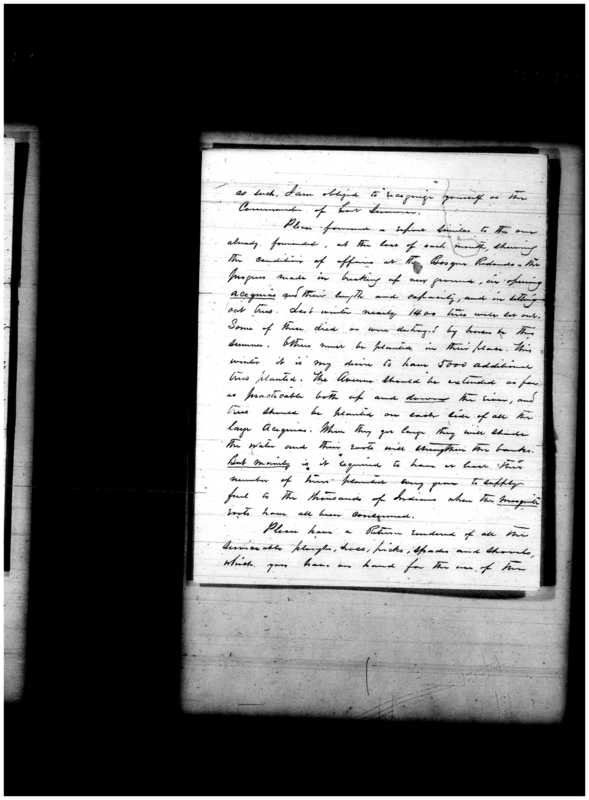 as such, I am obliged to recognize yourself as the
Commander of Fort Sumner.
Please forward a report similar to the one
already forwarded, at the close of each month, showing
the condition of affairs at the Bosque Redondo, the
progress made in breaking up new ground, in opening
acequias and their length and capacity, and in setting
out trees. Last winter nearly 1400 trees were set out.
Some of these died or were destroyed by horses this
summer. Others must be planted in their place. This
winter it is my desire to have 5000 additional
trees planted. The Avenue should be extended as far
as practicable both up and down the river, and
trees should be planted on each side of all the
large Acequias. When they get large they will shade
the water and their roots will strengthen the banks.
But mainly is it required to have at least this
number of trees planted every year to supply
fuel to the thousands of Indians when the mesquite
roots have all been consumed.
Please have a Return rendered of all the
serviceable ploughs, hoes, picks, spades and shovels,
which you have on hand for the use of the